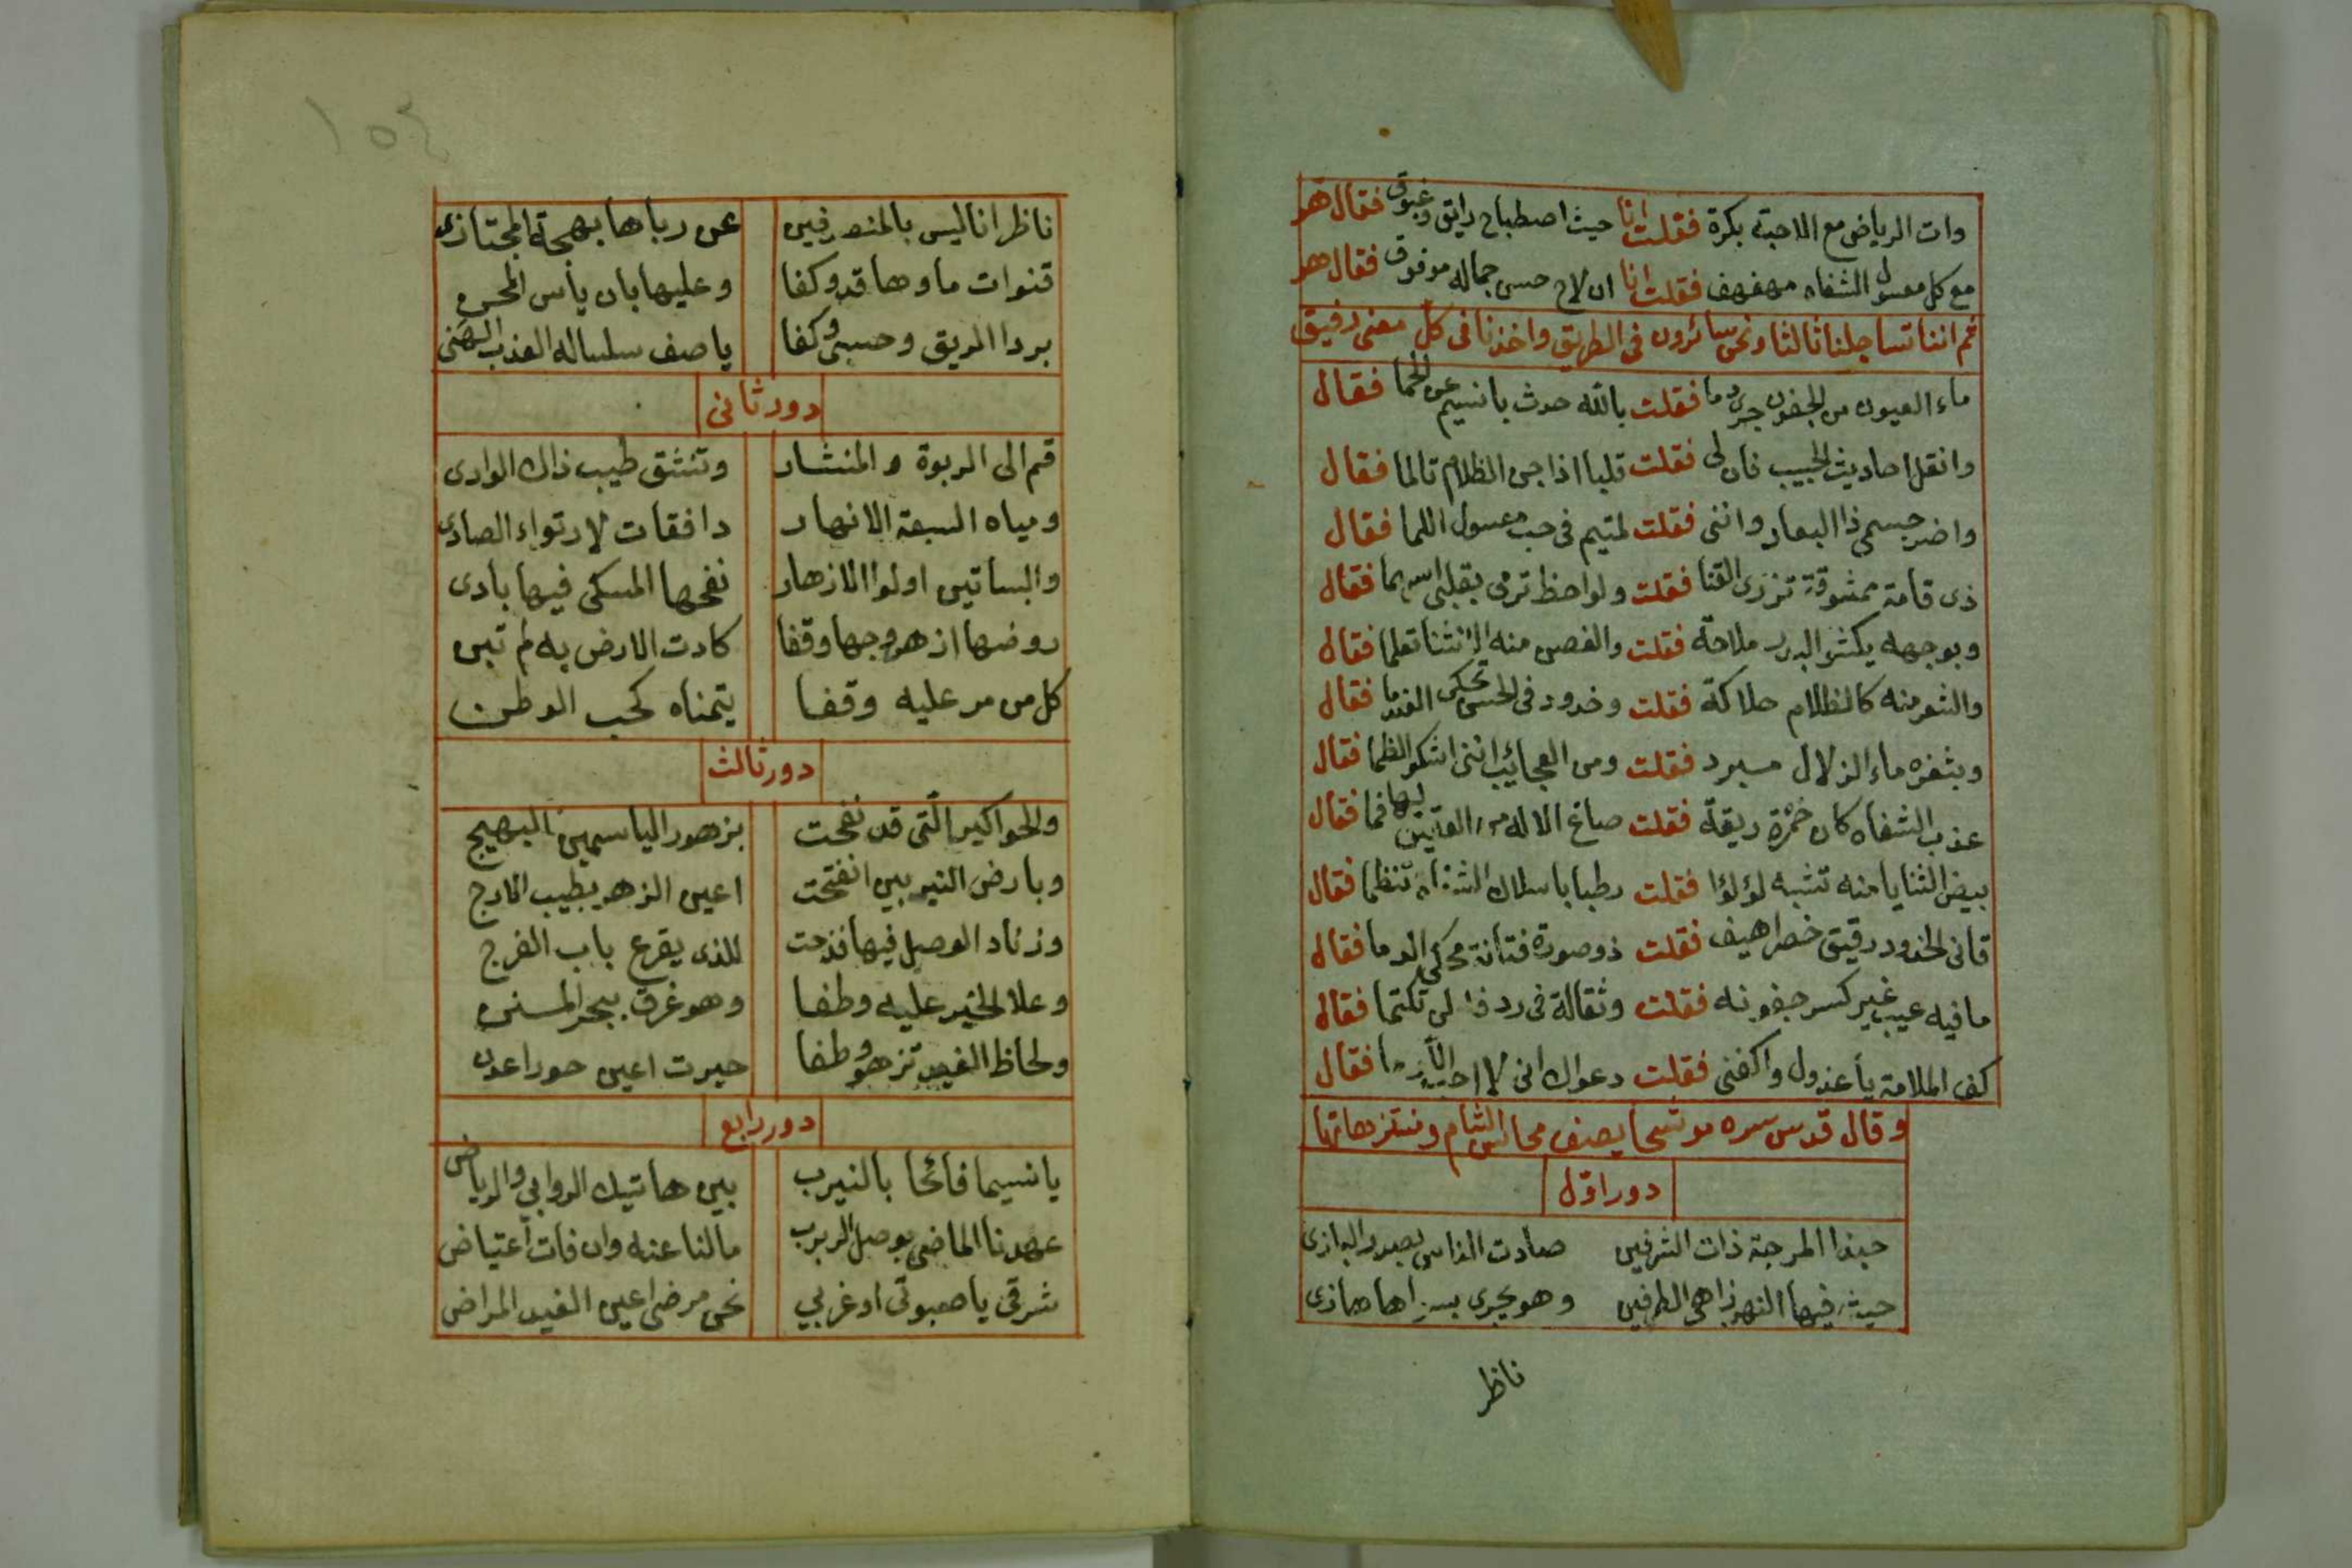 وات الرياض مع الاحبة بكرة فقلت انا حيث اصطباح رايق وغبوق فقال هو
مع كل معسول الشفاه مهفهف فقلت انا ان لاح حسن جماله موفوق فقال هو
ثم اننا تساجلنا ثالثا ونحن سائرون فى الطريق واخذنا فى كل معنى دقيق
ماء العيون من الجفون جرى دما فقلت بالله حدث يا نسيم عن الحما فقال
وانقل احاديث الحبيب فان لى فقلت قلبا اذا جن الظلام تالما فقال
واضر جسمى ذا البعاد واننى فقلت لمتيم فى حب معسول اللما فقال
ذى قامة ممشوقة تزرى القنا فقلت ولواحظ ترمى بقلبى اسهما فقال
وبوجهه يكسو البدر ملاحة فقلت والغصن منه الانثنا تعلما فقال
والشعر منه كالظلام حلاكة فقلت وخدود فى الحسن تحكى العندما فقال
وبثغره ماء الزلال مبرد فقلت ومن العجائب اننى اشكو الظما فقال
عذب الشفاه كان خمرة ريقة فقلت صاغ الاله من العقيق لها فما فقال
بيض الثنايا منه تشبه لؤلؤا فقلت رطبا باسلاك تنظما فقال
قانى الخدود رقيق خصر اهيف فقلت ذو صورة فتانة تحكى الدما فقال
ما فيه عيب غير كسر جفونه فقلت وثقالة فى ردف لن تكتما فقال
كف الملامة يا عذول واكفنى فقلت دعواك انى لا احب فقال
وقال قدس سره موشحا يصف محاسن الشام ومنتزهاتها
دور اول
حبذا المرجة ذات الشرفين صادت الناس بصدر البازى
حيث فيها النهر زاهى الطرفين وهو يجرى هازى
ناظر
١٥٤
ناظرا ناليس بالمنصرفين عن رباها بهجة المجتازى
قنوات ماوها قد وكفا وعليها بان يأس المحن
بردا الريق وحسبى وكفا يا صف سلساله العذب الهنى
دور ثانى
قم الى الربوة والمنشار وتنشق طيب ذاك الوادى
ومياه السبعة الانهار دافقات لارتواء الصادى
والبساتين اولوا الازهار نفحها المسكى فيها بادى
روضها ازهر وجها وقفا كادت الارض به لم تبن
كل من مر عليه وقفا يتمناه كحب الوطن
دور ثالث
والحواكير التى قد نفحت بزهور الياسمين البهيج
وبارض النيربين انفتحت اعين الزهر بطيب الارج
وزناد الوصل فيها قدحت للذى يقرع باب الفرج
وعلا الخير عليه وطفا وهو غرق ببحر المنن
ولحاظ الغيد تزهو وطفا حيرت اعين حورا عدن
دور رابع
يا نسيما فائحا بالنيرب بين هاتيك الروابي والرياض
عهدنا الماضى بوصل الربرب مالنا عنه وان فات اعتياض
شرقى يا صبوتى او غربي نحن مرضى اعين الغيد المراض